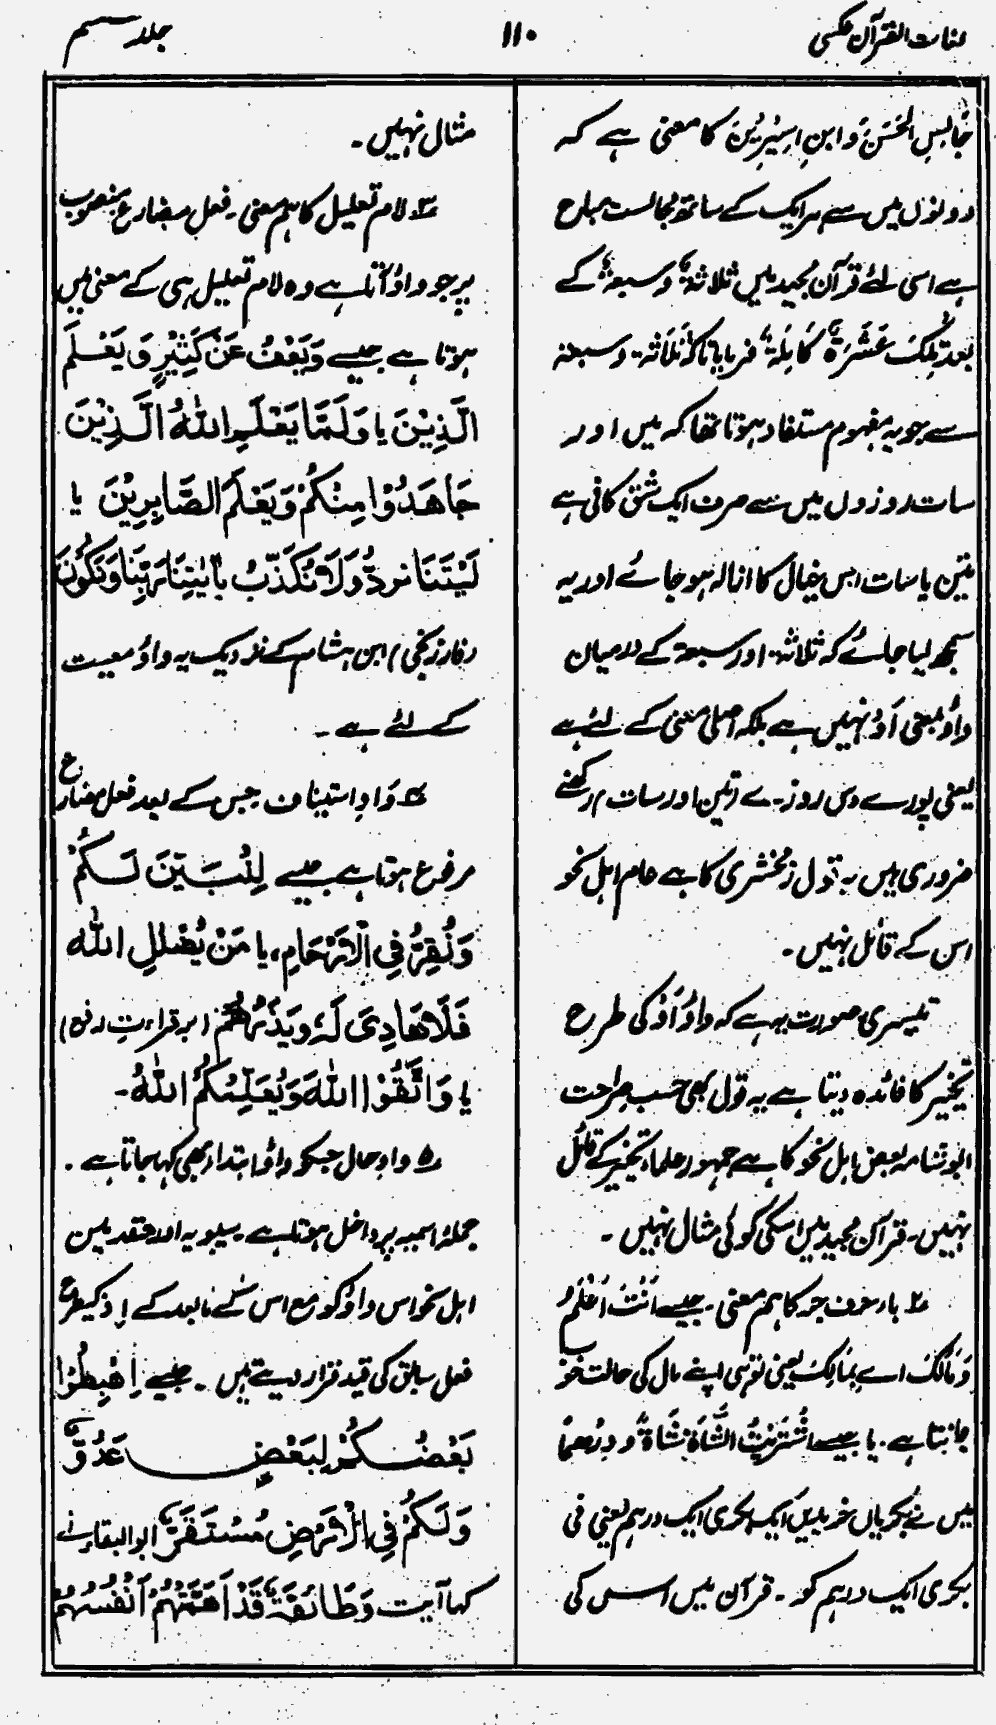 لغات القرآن عکسی
۱۱۰
جلد ششم
جَالِسِ الْحَسَنَ وَابنِ اسِیْرِیْنَ کا معنی ہے کہ
دونوں میں سے ہر ایک کے ساتھ مجالست مباح
ہے اسی لئے قرآن مجید میں ثلاثۃ و سبعۃ کے
بعد تِلْکَ عَشَرَۃٌ کَامِلَۃٌ فرمایا تاکہ ثَلَاثۃ و سبعۃ
سے جو یہ مفہوم مستفاد ہوتا تھا کہ میں اور
سات روزوں میں سے صرف ایک شق کافی ہے
تین یا سات اس خیال کا ازالہ ہو جائے اور یہ
سمجھ لیا جائے کہ ثلاثۃ اور سبعۃ کے درمیان
واؤ بمعنی اَوْ نہیں ہے بلکہ اصلی معنی کے لئے ہے
یعنی پورے دس روزے (تین اور سات) رکھنے
ضروری ہیں یہ قول زمخشری کا ہے عام اہل نحو
اس کے قائل نہیں۔
تیسری صورت یہ ہے کہ واؤ اَوْ کی طرح
تخییر کا فائدہ دیتا ہے یہ قول بھی حسب صراحت
ابو شامہ بعض اہل نحو کا ہے جمہور علماء تخییر کے قائل
نہیں۔ قرآن مجید میں اسکی کوئی مثال نہیں۔
باء حرف جر کا ہم معنی۔ جیسے اَنْتَ اَعْلَمُ
وَمَالَکَ اے بِمَالِکَ یعنی تو ہی اپنے مال کی حالت خوب
جانتا ہے۔ یا جیسے اشْتَرَیْتُ الشَّاۃَ شَاۃً و دِرْھَمًا
میں نے بکریاں خریدیں ایک بکری ایک درہم یعنی فی
بکری ایک درہم کو۔ قرآن میں اس کی
مثال نہیں۔
لام تعلیل کا ہم معنی۔ فعل مضارع منصوب
پر جو واؤ آتا ہے وہ لام تعلیل ہی کے معنی میں
ہوتا ہے جیسے وَیَعْفُ عَنْ کَثِیْرٍ وَ یَعْلَمَ
الَّذِیْنَ یا وَلَمَّا یَعْلَمِ اللّٰہُ الَّذِیْنَ
جَاھَدُوْا مِنْکُمْ وَیَعْلَمَ الصَّابِرِیْنَ یا
لَیْتَنَا نُرَدُّ وَلَا نُکَذِّبَ بِاٰیٰتِنَا رَبِّنَا وَنَکُوْنَ
(خارزنجی) ابن ہشام کے نزدیک یہ واؤ معیت
کے لئے ہے۔
وَاوِ استیناف جس کے بعد فعل مضارع
مرفوع ہوتا ہے جیسے لِنُبَیِّنَ لَکُمْ
وَنُقِرُّ فِی الْاَرْحَامِ، یا مَنْ یُضْلِلِ اللّٰہُ
فَلَا ھَادِیَ لَہٗ وَیَذَرُھُمْ (بر قراءتِ رفع)
یا وَاتَّقُوْا اللّٰہَ وَیُعَلِّمُکُمُ اللّٰہُ۔
۵ واوِ حال جسکو واؤ ابتداء بھی کہا جاتا ہے۔
جملۂ اسمیہ پر داخل ہوتا ہے۔ سیبویہ اور متقدمین
اہل نحو اس واؤ کو مع اس کے مابعد کے اِذ کیطرح
فعل سابق کی قید قرار دیتے ہیں۔ جیسے اِھْبِطُوْا
بَعْضُکُمْ لِبَعْضٍ عَدُوٌّ
وَلَکُمْ فِی الْاَرْضِ مُسْتَقَرٌّ ابو البقاء نے
کہا آیت وَطَائِفَۃٌ قَدْ اَھَمَّتْھُمْ اَنْفُسُھُمْ